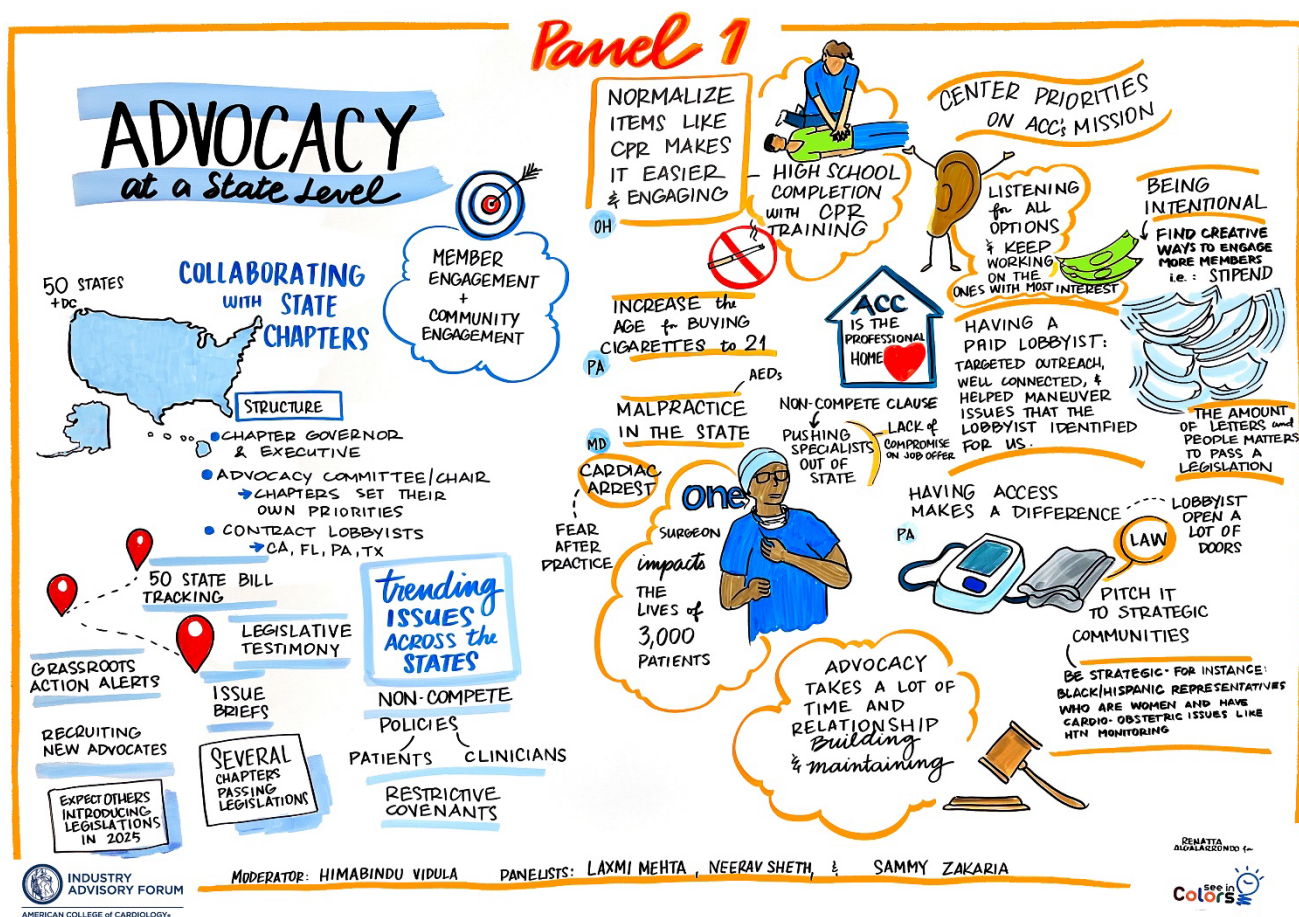 Panel 1
ADVOCACY
at a State Level
MEMBER
ENGAGEMENT
+
COMMUNITY
ENGAGEMENT
50 STATES
+DC
COLLABORATING
WITH STATE
CHAPTERS
STRUCTURE
CHAPTER GOVERNOR
& EXECUTIVE
ADVOCACY COMMITTEE/CHAIR
→ CHAPTERS SET THEIR
OWN PRIORITIES
CONTRACT LOBBYISTS
→ CA, FL, PA, TX
50 STATE BILL
TRACKING
LEGISLATIVE
TESTIMONY
GRASSROOTS
ACTION ALERTS
ISSUE
BRIEFS
RECRUITING
NEW ADVOCATES
SEVERAL
CHAPTERS
PASSING
LEGISLATIONS
EXPECT OTHERS
INTRODUCING
LEGISLATIONS
IN 2025
trending
ISSUES
ACROSS the
STATES
NON-COMPETE
POLICIES
PATIENTS
CLINICIANS
RESTRICTIVE
COVENANTS
NORMALIZE
ITEMS LIKE
CPR MAKES
IT EASIER
& ENGAGING
OH
HIGH SCHOOL
COMPLETION
WITH CPR
TRAINING
INCREASE the
AGE for BUYING
CIGARETTES to 21
PA
AEDs
MALPRACTICE
IN THE STATE
MD
CARDIAC
ARREST
FEAR
AFTER
PRACTICE
one
SURGEON
impacts
THE
LIVES of
3,000
PATIENTS
ACC
IS THE
PROFESSIONAL
HOME
NON-COMPETE CLAUSE
PUSHING
SPECIALISTS
OUT OF
STATE
LACK of
COMPROMISE
ON JOB OFFER
CENTER PRIORITIES
ON ACC's MISSION
LISTENING
for ALL
OPTIONS
& KEEP
WORKING
ON THE
ONES WITH MOST INTEREST
BEING
INTENTIONAL
FIND CREATIVE
WAYS TO ENGAGE
MORE MEMBERS
i.e.: STIPEND
HAVING A
PAID LOBBYIST:
TARGETED OUTREACH,
WELL CONNECTED, &
HELPED MANEUVER
ISSUES THAT THE
LOBBYIST IDENTIFIED
FOR US.
THE AMOUNT
OF LETTERS and
PEOPLE MATTERS
TO PASS A
LEGISLATION
HAVING ACCESS
MAKES A DIFFERENCE
LOBBYIST
OPEN A
LOT OF
DOORS
PA
LAW
PITCH IT
TO STRATEGIC
COMMUNITIES
BE STRATEGIC - FOR INSTANCE:
BLACK/HISPANIC REPRESENTATIVES
WHO ARE WOMEN AND HAVE
CARDIO-OBSTETRIC ISSUES LIKE
HTN MONITORING
ADVOCACY
TAKES A LOT OF
TIME AND
RELATIONSHIP
Building
& Maintaining
INDUSTRY
ADVISORY FORUM
AMERICAN COLLEGE of CARDIOLOGY®
MODERATOR: HIMABINDU VIDULA PANELISTS: LAXMI MEHTA, NEERAV SHETH, & SAMMY ZAKARIA
RENATTA
for
see in
Colors